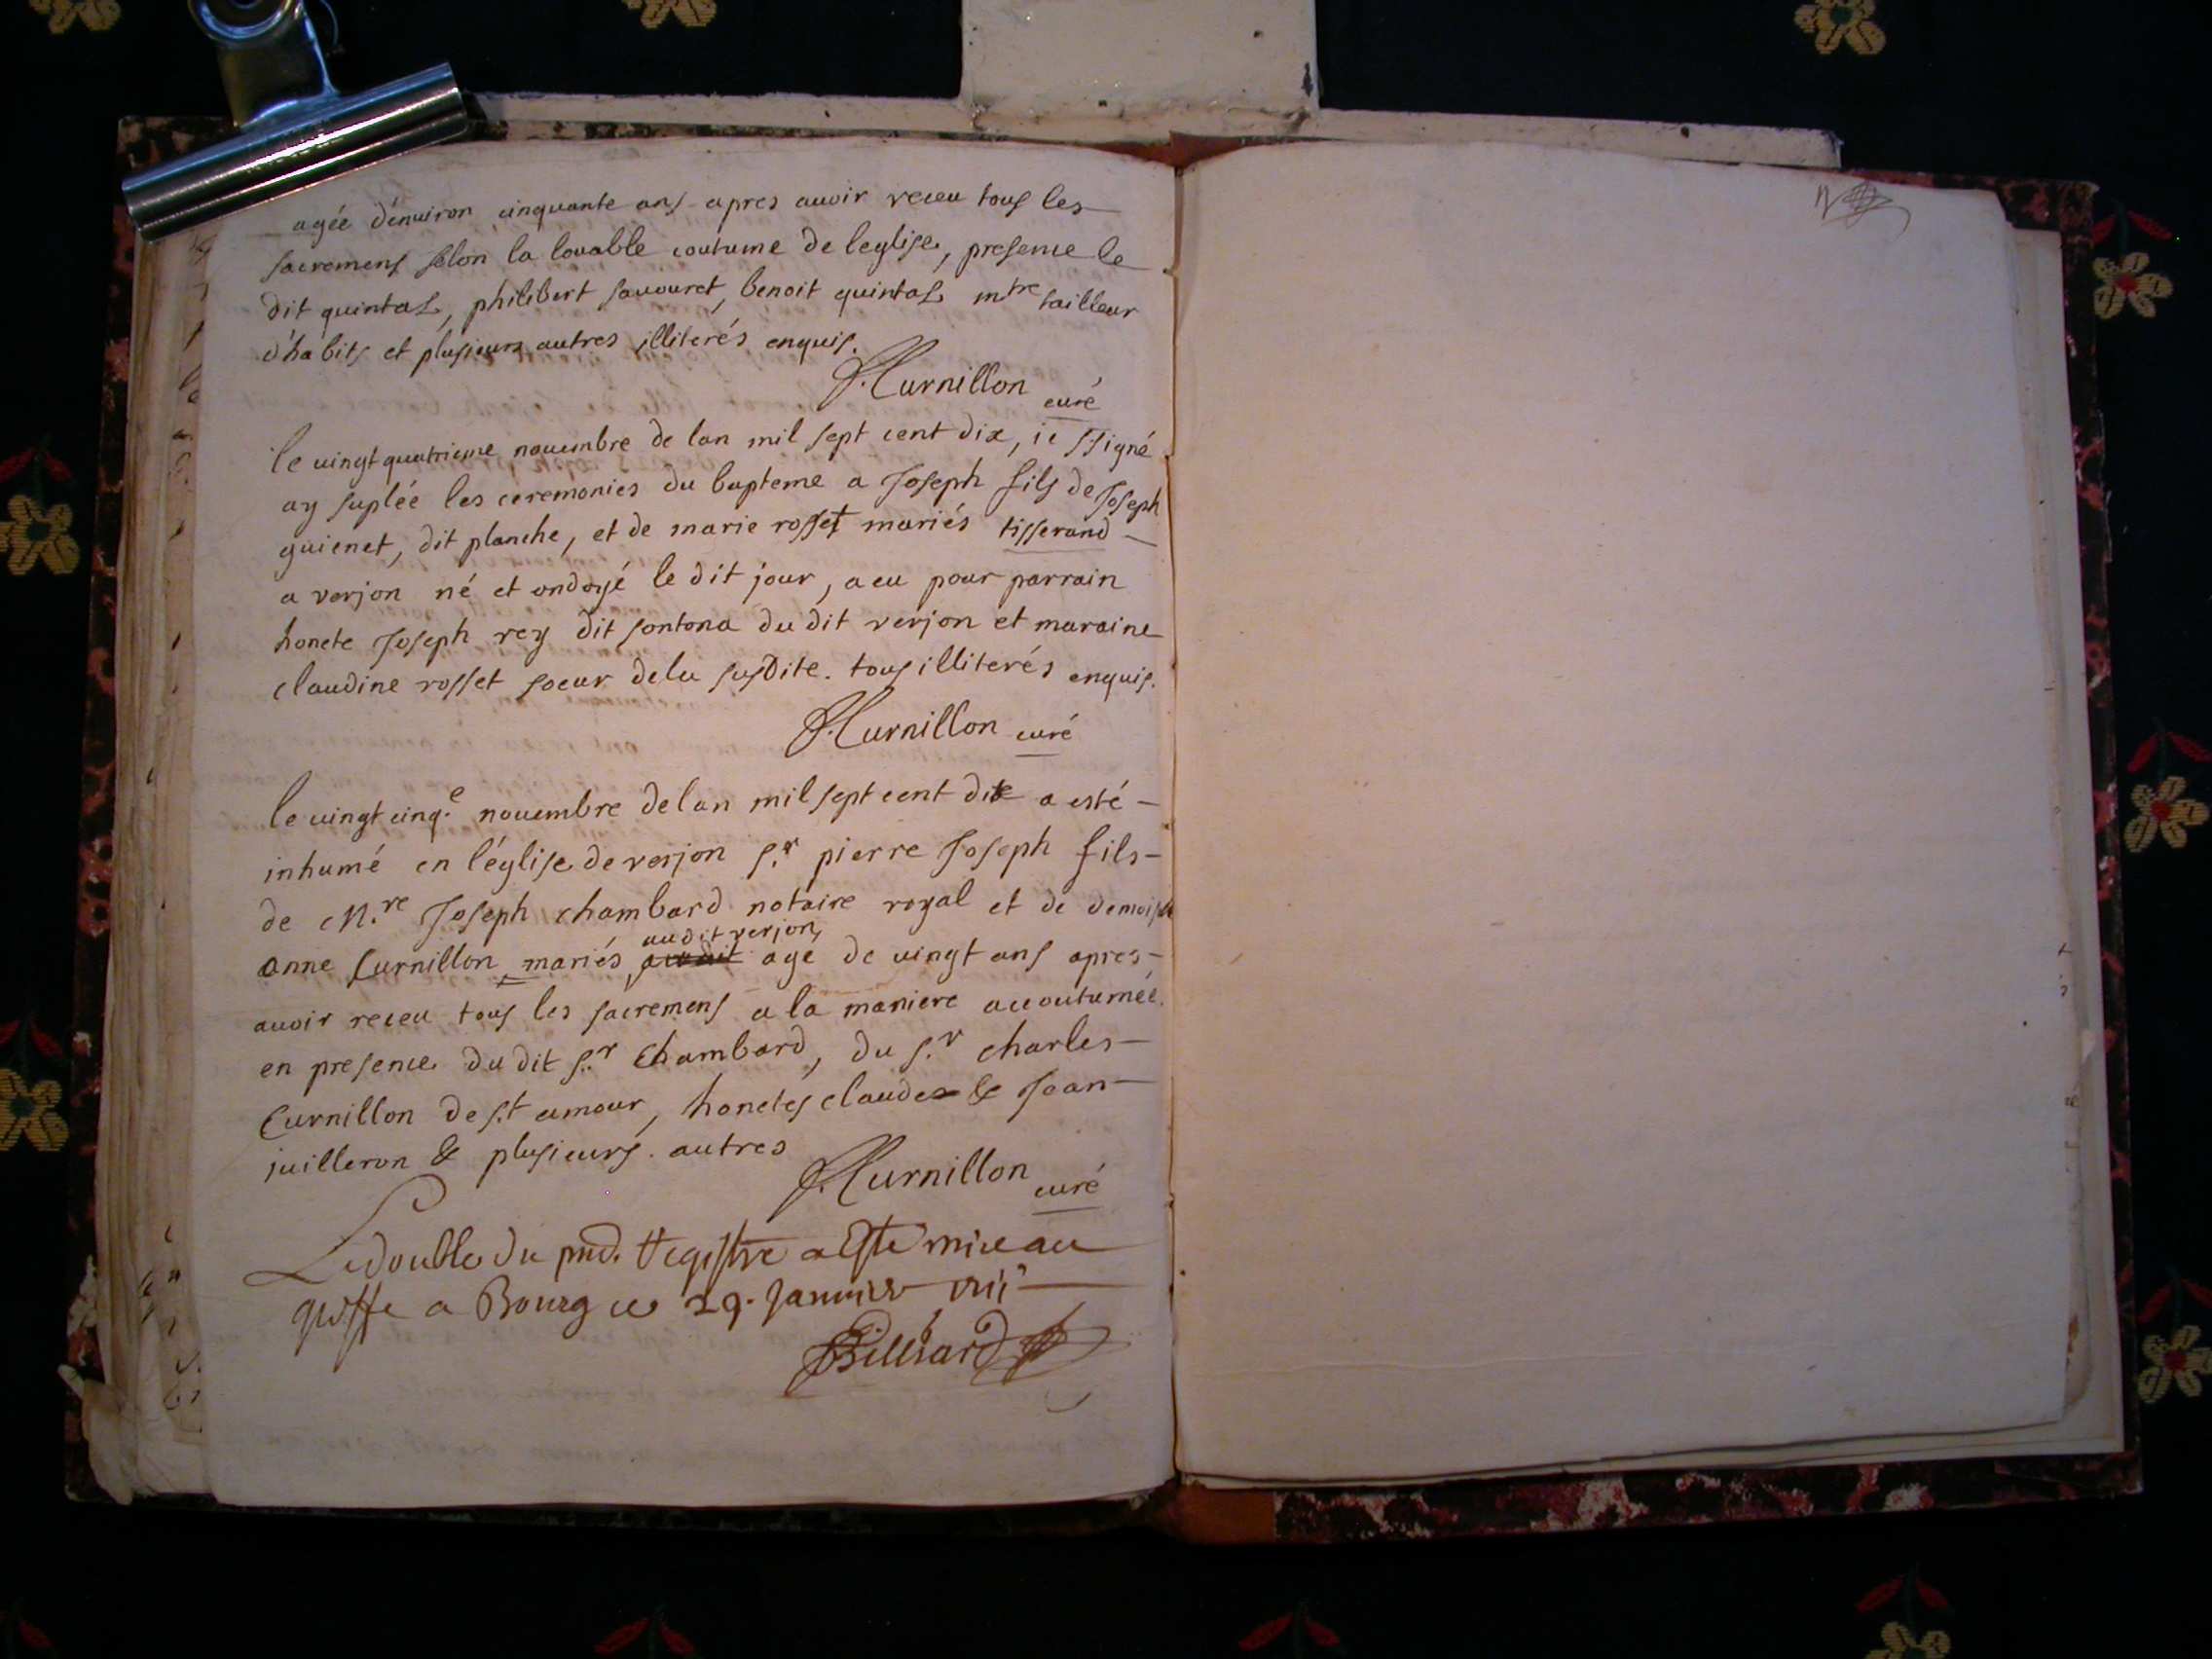 agée d'enuiron cinquante ans apres auoir receu tous les
sacremens selon la louable coutume de leglise, presence le
dit quintal, philibert sauouret, benoit quintal mtre tailleur
d'habits et plusieurs autres illiterés enquis.
Curnillon curé
le uingt quatrieme nouembre de lan mil sept cent dix, ie ssigné
ay suplée les ceremonies du bapteme a Joseph fils de Joseph
guienet, dit planche, et de marie rosset mariés tisserand
a verjon né et ondoyé le dit jour, a eu pour parrain
honete Joseph rey dit santona du dit verjon et maraine
claudine rosset soeur dela susdite. tous illiterés enquis.
Curnillon curé
le uingt cinq.e nouembre delan mil sept cent dix a esté
inhumé en l'église de verjon s.r pierre Joseph fils
de M.re Joseph chambard notaire royal et de demoiselle
audit verjon,
anne Curnillon mariés age de uingt ans apres
auoir receu tous les sacremens a la maniere accoutumée.
en presence du dit s.r Chambard, du s.r charles
Curnillon de s.t amour, honetes claude & Jean
juilleron & plusieurs autres
Curnillon curé
Le double du pnd. Registre a Esté mis au
greffe a Bourg ce 29. Janvier
Billiard